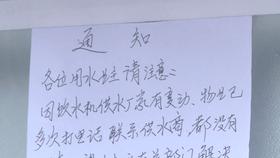 通知
各位用水业主请注意:
因饮水机供水厂家有变动、物业已
多次打电话联系供水商,都没有